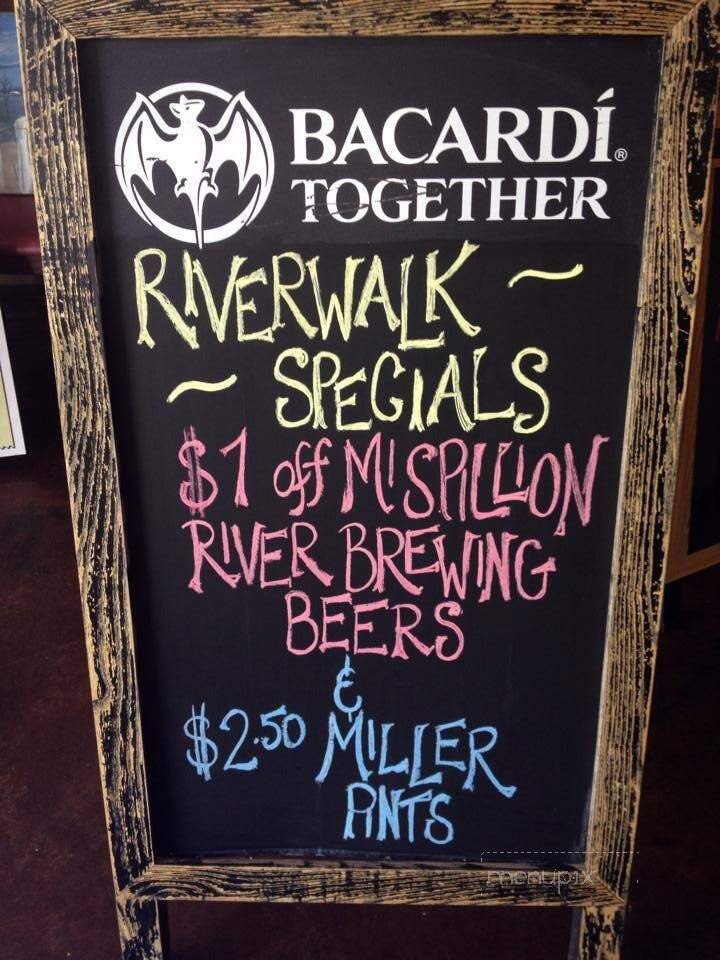 BACARDÍ®
TOGETHER
RIVERWALK ~
~ SPECIALS
$1 off MISPILLION
RIVER BREWING
BEERS
&
$2.50 MILLER
PINTS
menupix